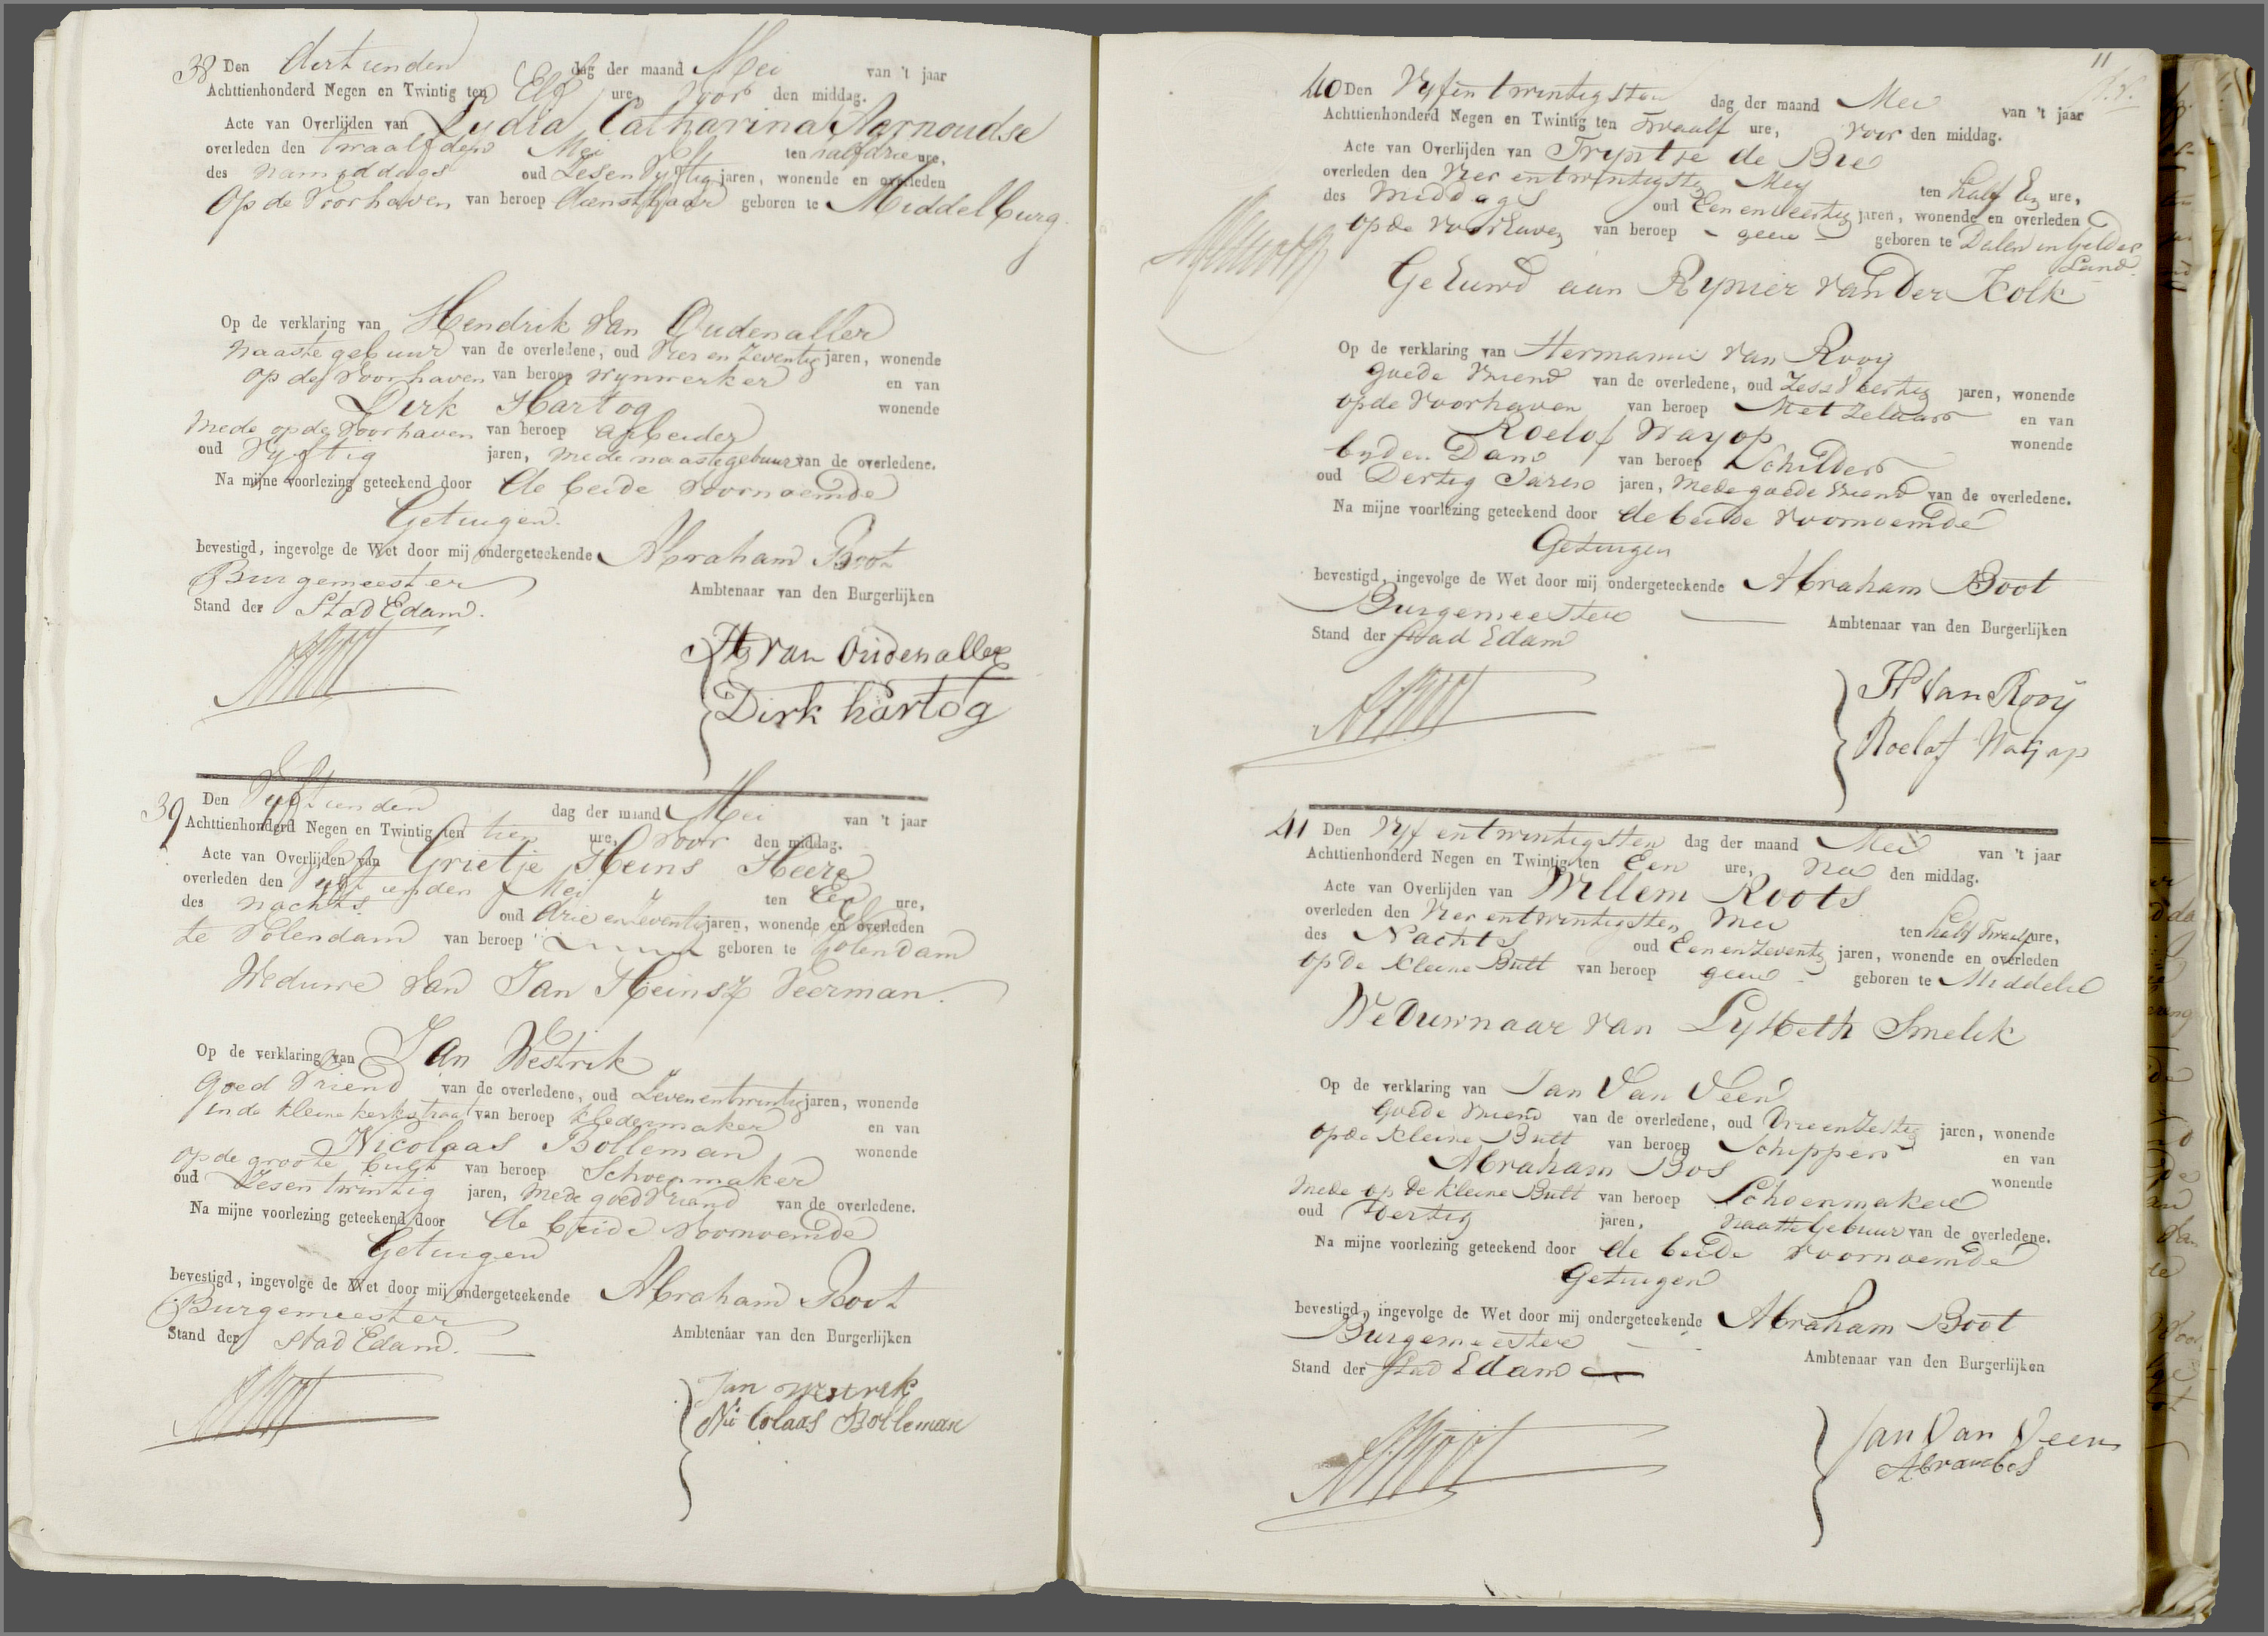 38 Den dertienden dag der maand Mei van 't jaar
Achttienhonderd Negen en Twintig ten Elf ure, voor den middag.
Acte van Overlijden van Lydia Catharina Aarnoudse
overleden den twaalfden Mei ten half drie ure,
des namiddags oud Zesen Vyftig jaren, wonende en overleden
op de Voorhaven van beroep dienstbaar geboren te Middelburg
Op de verklaring van Hendrik van Oudenaller
naaste gebuur van de overledene, oud Vier en Zeventig jaren, wonende
op de Voorhaven van beroep wynwerker en van
Dirk Hartog wonende
mede op de Voorhaven van beroep arbeider
oud Vyftig jaren, mede naaste gebuur van de overledene.
Na mijne voorlezing geteekend door de beide voornoemde
Getuigen.
bevestigd, ingevolge de Wet door mij ondergeteekende Abraham Boot
Burgemeester Ambtenaar van den Burgerlijken
Stand der Stad Edam.
ABoot
H van Oudenaller
Dirk hartog
39 Den Vyftienden dag der maand Mei van 't jaar
Achttienhonderd Negen en Twintig ten tien ure, voor den middag.
Acte van Overlijden van Grietje Heins Heere
overleden den vyftienden Mei ten Een ure,
des nachts oud drie en Zeventig jaren, wonende en overleden
te Volendam van beroep geboren te Volendam
Weduwe van Jan Heinsz Veerman.
Op de verklaring van Jan Westrik
Goed Vriend van de overledene, oud Zevenentwintig jaren, wonende
in de kleine kerkstraat van beroep kledermaker en van
Nicolaas Bolleman wonende
op de groote bult van beroep Schoenmaker
oud Zesen twintig jaren, mede goed Vriend van de overledene.
Na mijne voorlezing geteekend door de beide voornoemde
Getuigen
bevestigd, ingevolge de Wet door mij ondergeteekende Abraham Boot
Burgemeester Ambtenaar van den Burgerlijken
Stand der Stad Edam.
ABoot
Jan Westrik
Nicolaas Bolleman
11
40 Den Vyfentwintigsten dag der maand Mei van 't jaar
Achttienhonderd Negen en Twintig ten Twaalf ure, voor den middag.
Acte van Overlijden van Tryntje de Bie
overleden den Vier entwintigsten Mey ten half Een ure,
des Middags oud Een en veertig jaren, wonende en overleden
op de voorhaven van beroep - geen - geboren te Dalen in Gelder
Land.
Gehuwd aan Rynier van der Kolk
Op de verklaring van Hermanus van Rooy
goede vriend van de overledene, oud Zes Veertig jaren, wonende
op de Voorhaven van beroep Metzelaar en van
Roelof Wayop wonende
by den Dam van beroep Schilder
oud Dertig Jaren jaren, mede goede vriend van de overledene.
Na mijne voorlezing geteekend door de beide voornoemde
Getuigen
bevestigd, ingevolge de Wet door mij ondergeteekende Abraham Boot
Burgemeester Ambtenaar van den Burgerlijken
Stand der Stad Edam
ABoot
H Van Rooÿ
Roelof Wayop
41 Den Vyf entwintigsten dag der maand Mei van 't jaar
Achttienhonderd Negen en Twintig ten Een ure, na den middag.
Acte van Overlijden van Willem Roots
overleden den Vier entwintigsten Mei ten half Twaalf ure,
des Nachts oud Een en Zeventig jaren, wonende en overleden
op de kleine Bult van beroep geen - geboren te Middelie
Weduwnaar van Lysbeth Smelik
Op de verklaring van Jan Van Veen
Goede vriend van de overledene, oud Drie en Zestig jaren, wonende
op de kleine Bult van beroep Schipper en van
Abraham Bos wonende
mede op de kleine Bult van beroep Schoenmaker
oud Dertig jaren, naaste Gebuur van de overledene.
Na mijne voorlezing geteekend door de beide voornoemde
Getuigen
bevestigd, ingevolge de Wet door mij ondergeteekende Abraham Boot
Burgemeester Ambtenaar van den Burgerlijken
Stand der Stad Edam
ABoot
Jan Van Veen
Abram bos